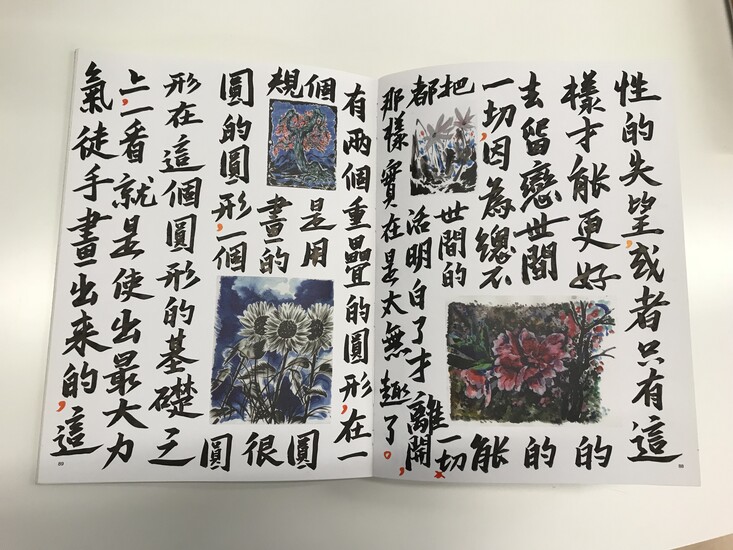 性的失望,或者只有這
樣才能更好的
去留戀世間的
一切,因為總不能
把世間的一切
都活明白了才離開,
那樣實在是太無趣了。
有兩個重疊的圓形,在一
個是用圓
規畫的很
圓的圓形,一個圓
形在這個圓形的基礎之
上,一看就是使出最大力
氣徒手畫出来的,這
88
89